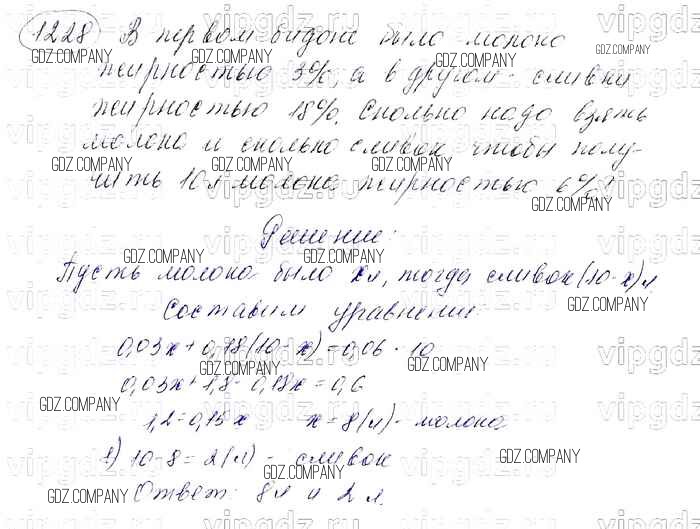 1228 В первом бидоне было молоко
жирностью 3%, а в другом - сливки
жирностью 18%. Сколько надо взять
молока и сколько сливок чтобы полу-
чить 10 л молока жирностью 6%?
Решение:
Пусть молока было x л, тогда сливок (10-x) л
Составим уравнение:
0,03x + 0,18(10-x) = 0,06 · 10
0,03x + 1,8 - 0,18x = 0,6
1,2 = 0,15x x = 8 (л) - молока
1) 10 - 8 = 2 (л) - сливок
Ответ: 8 л и 2 л.
GDZ.COMPANY
vipgdz.ru